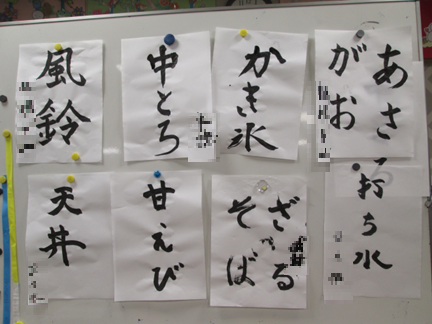 あさ
がお
かき氷
中とろ
風鈴
打ち水
ざる
そば
甘えび
天丼